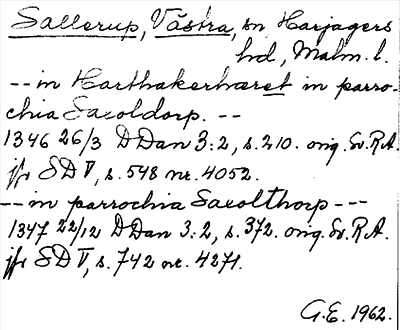 Sallerup, Västra, sn Harjagers
hd, Malm. l.
-- in Harthakerhæret in parro-
chia Saxoldorp. --
1346 26/3 D Dan 3:2, s. 210. orig. Sv. R.A.
jfr SD V, s. 548 nr. 4052.
-- in parrochia Saxolthorp ---
1347 22/12 D Dan 3:2, s. 372. orig. Sv. R.A.
jfr SD V, s. 742 nr. 4271.
G.E. 1962.